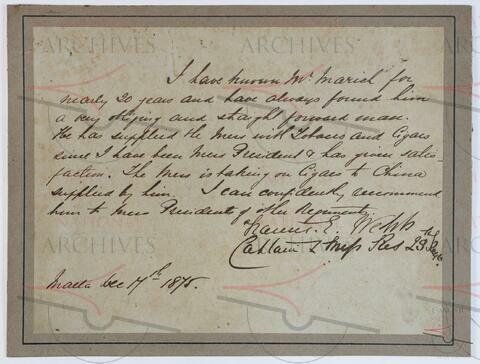 ARCHIVES ARCHIVES ARCHIVES
I have known Mr. Marich for
nearly 20 years and have always found him
a very obliging and straight forward man.
He has supplied the Mess with Tobacco and Cigars
since I have been Mess President & has given satis-
faction. The Mess is taking on Cigars to China
supplied by him. I can confidently recommend
him to Mess Presidents of other Regiments.
E. Webb
Captain & Mess Pres
Malta Dec 17th 1875.